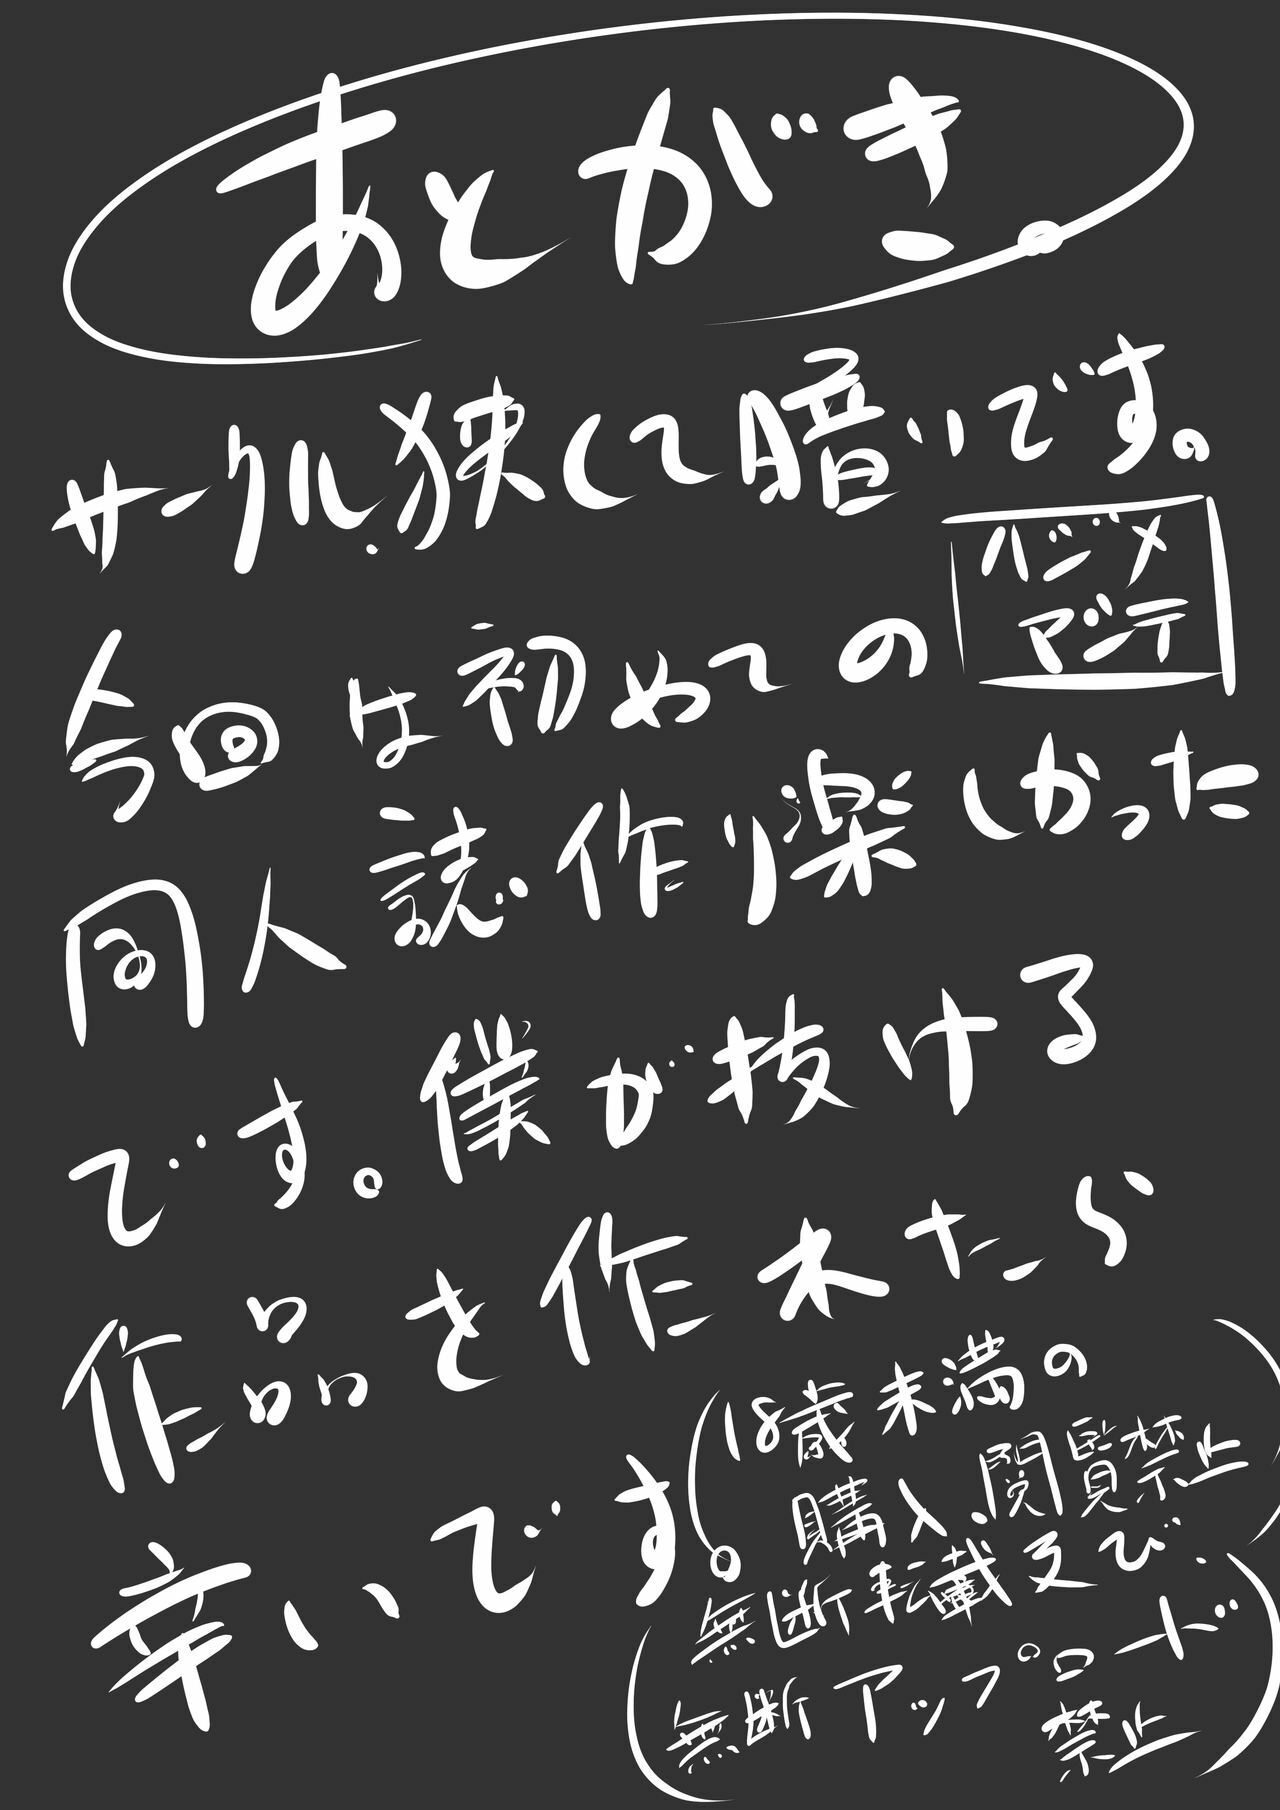 あとがき
サークル.狭くて暗いです。
今回は初めての
ハジメ
マシテ
同人誌作り楽しかった
です。僕が抜ける
作品を作れたら
幸いです。
(18歳未満の
購入.閲覧禁止)
(無断転載及び.
無断アップロード
禁止)